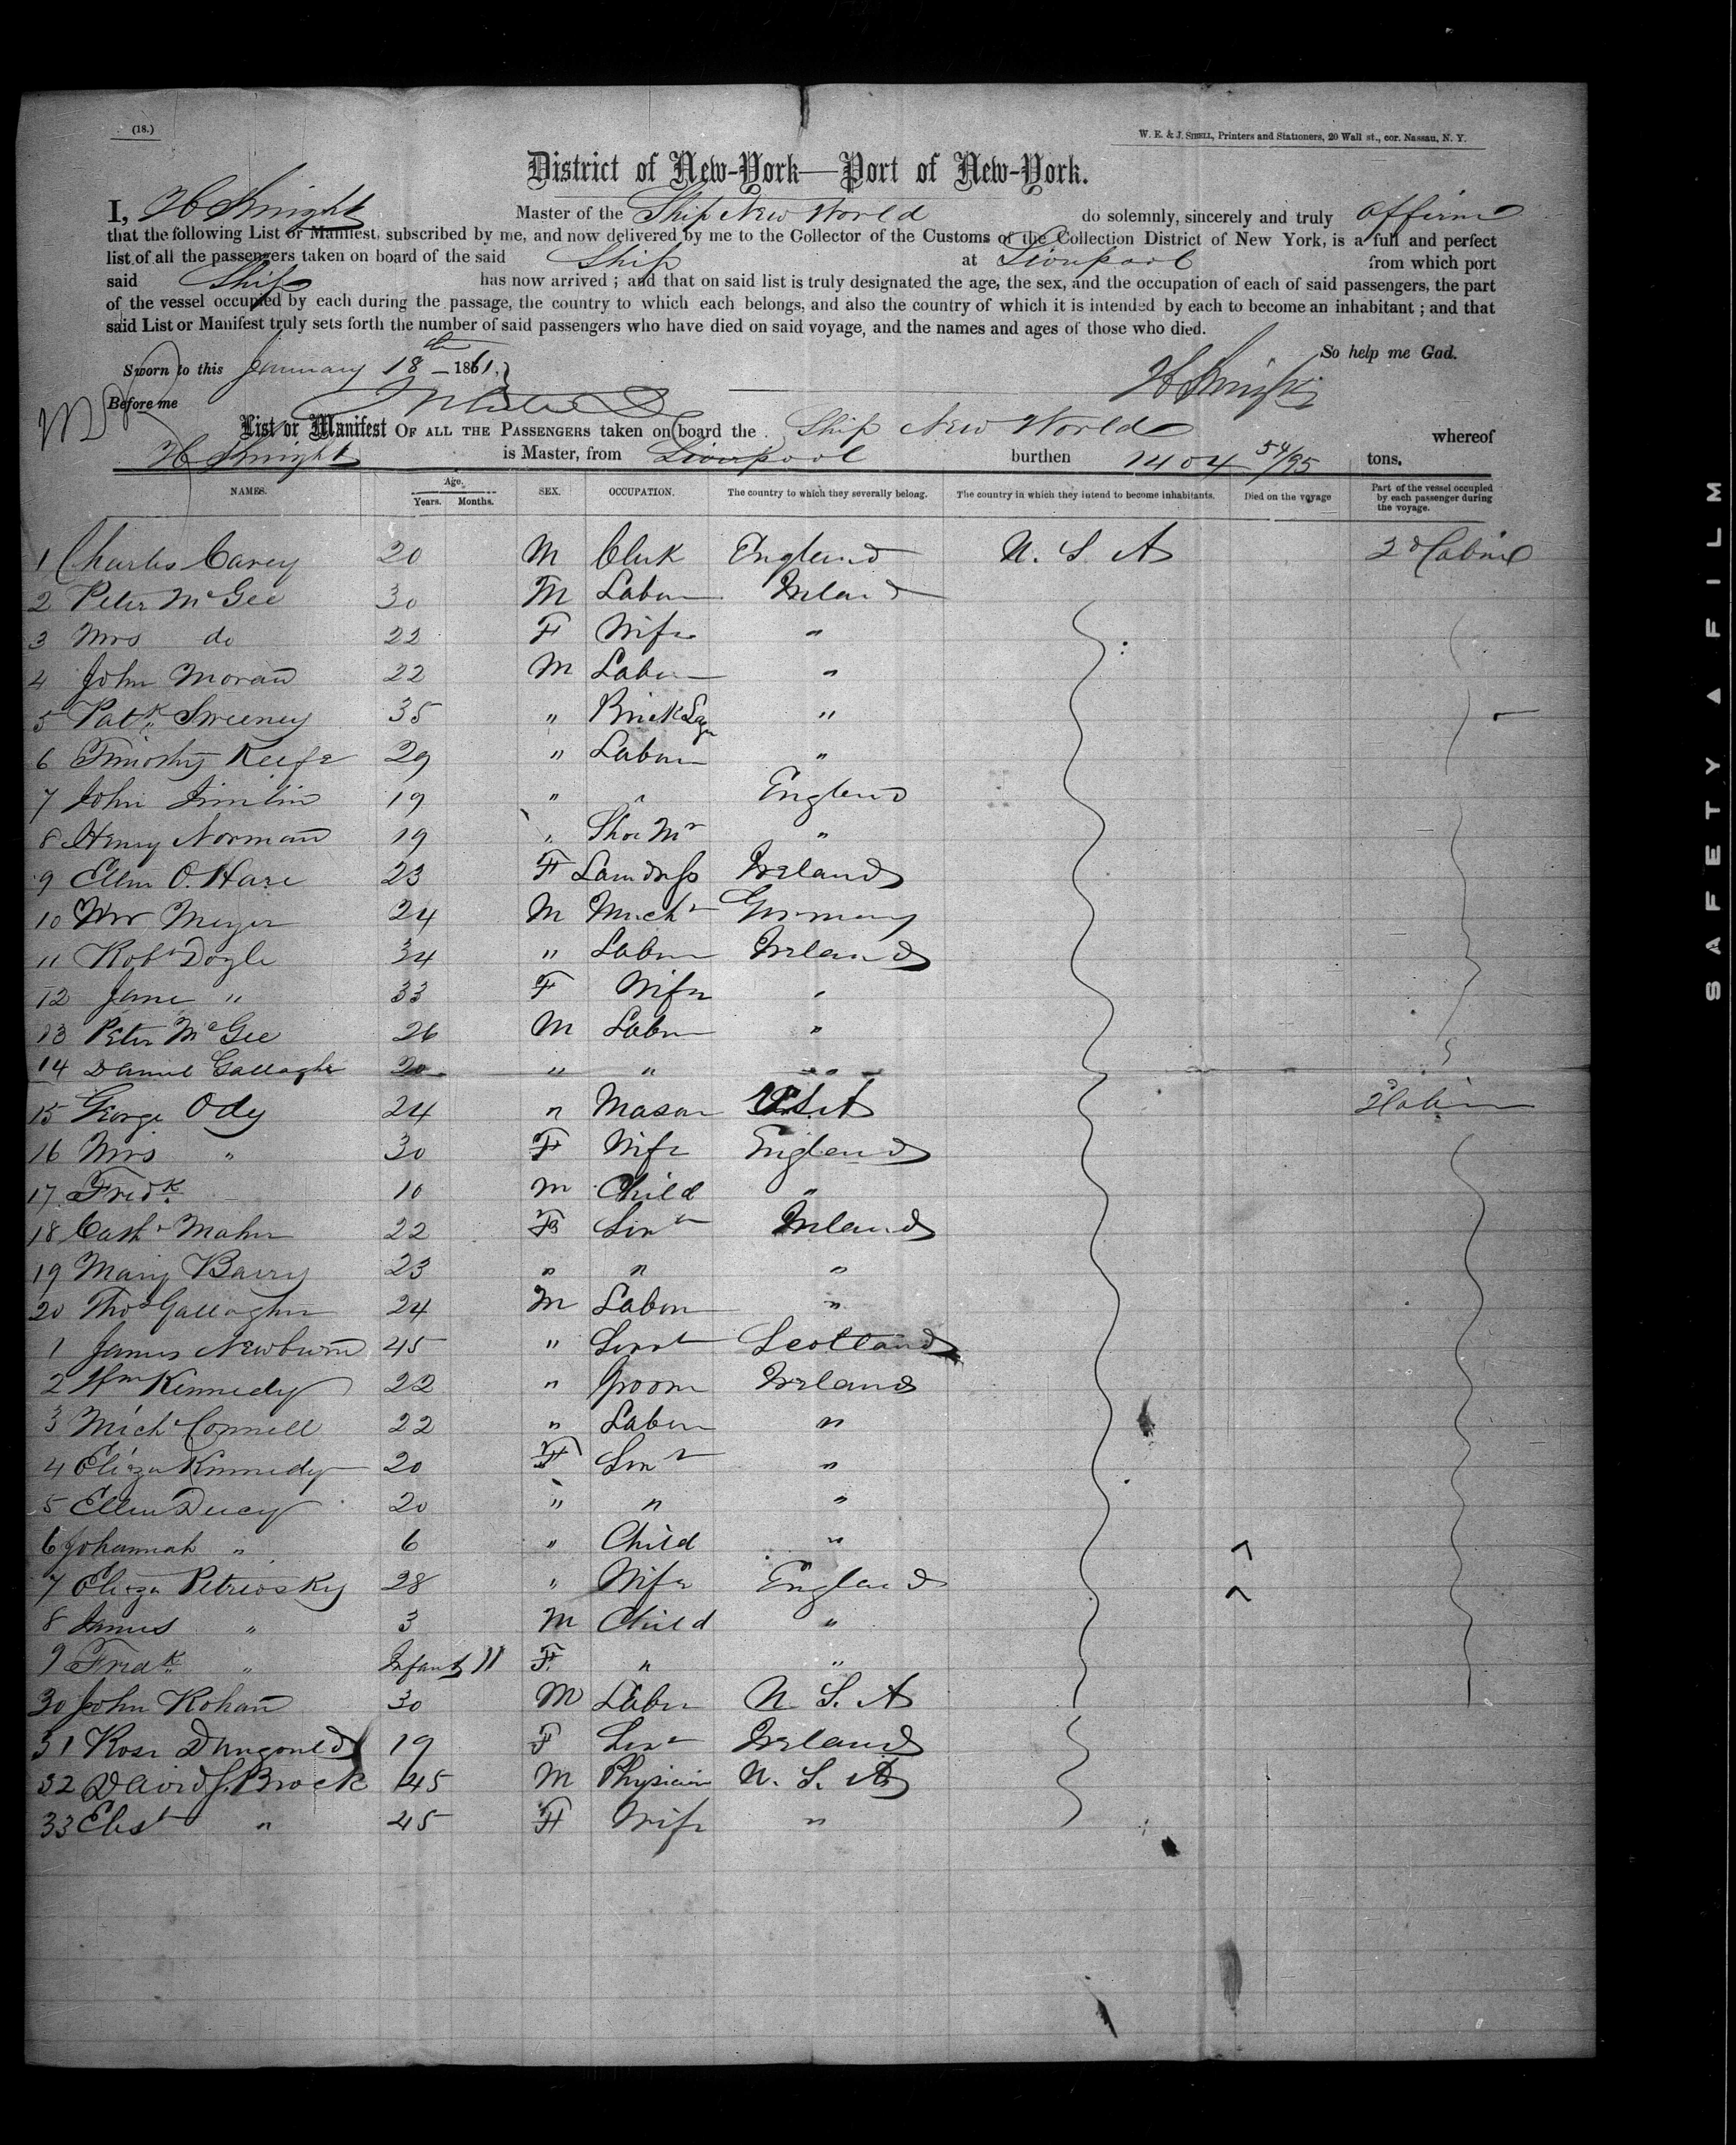 (18.)
W. E. & J. SIBELL, Printers and Stationers, 20 Wall st., cor. Nassau, N. Y.
District of New-York—Port of New-York.
I, H Knight Master of the Ship New World do solemnly, sincerely and truly affirm
that the following List or Manifest, subscribed by me, and now delivered by me to the Collector of the Customs of the Collection District of New York, is a full and perfect
list of all the passengers taken on board of the said Ship at Liverpool from which port
said Ship has now arrived ; and that on said list is truly designated the age, the sex, and the occupation of each of said passengers, the part
of the vessel occupied by each during the passage, the country to which each belongs, and also the country of which it is intended by each to become an inhabitant ; and that
said List or Manifest truly sets forth the number of said passengers who have died on said voyage, and the names and ages of those who died.
So help me God.
Sworn to this January 18th 1861.
H Knight
Before me
List or Manifest OF ALL THE PASSENGERS taken on board the Ship New World whereof
H Knight is Master, from Liverpool burthen 1404 54/95 tons.
NAMES. Age. Years. Months. SEX. OCCUPATION. The country to which they severally belong. The country in which they intend to become inhabitants. Died on the voyage Part of the vessel occupied by each passenger during the voyage.
1 Charles Carey 20 M Clerk England U. S. A 2d Cabin
2 Peter McGee 30 M Labor Ireland
3 Mrs do 22 F Wife "
4 John Moran 22 M Labor "
5 Patk Sweeney 35 " Brick Layr "
6 Timothy Keefe 29 " Labour "
7 John 19 " " England
8 Henry Norman 19 " Shoe Mr "
9 Ellen O. Hare 23 F Laundrss Ireland
10 Meyer 24 M Mercht Germany
11 Robt Doyle 34 " Labour Ireland
12 Jane " 33 F Wife "
13 Peter McGee 26 M Labor "
14 Daniel Gallagher 20 " " "
15 George Ody 24 " Mason U S A 2 Cabin
16 Mrs " 30 F Wife England
17 Fredk 10 M Child "
18 Cath Maher 22 F Servt Ireland
19 Mary Barry 23 " " "
20 Thos Gallagher 24 M Labour "
1 James Newburn 45 " Servt Scotland
2 Wm Kennedy 22 " Groom Ireland
3 Michl Connell 22 " Labour "
4 Eliza Kennedy 20 F Servt "
5 Ellen Ducy 20 " " "
6 Johannah " 6 " Child "
7 Eliza Petriosky 28 " Wife England
8 James " 3 M Child "
9 Fredk " Infant 11 F. " "
30 John Kohan 30 M Labor U. S. A
31 Rose 19 F Servt Ireland
32 David J. Brock 45 M Physician U. S. A
33 Elist " 45 F Wife "
SAFETY ▲ FILM